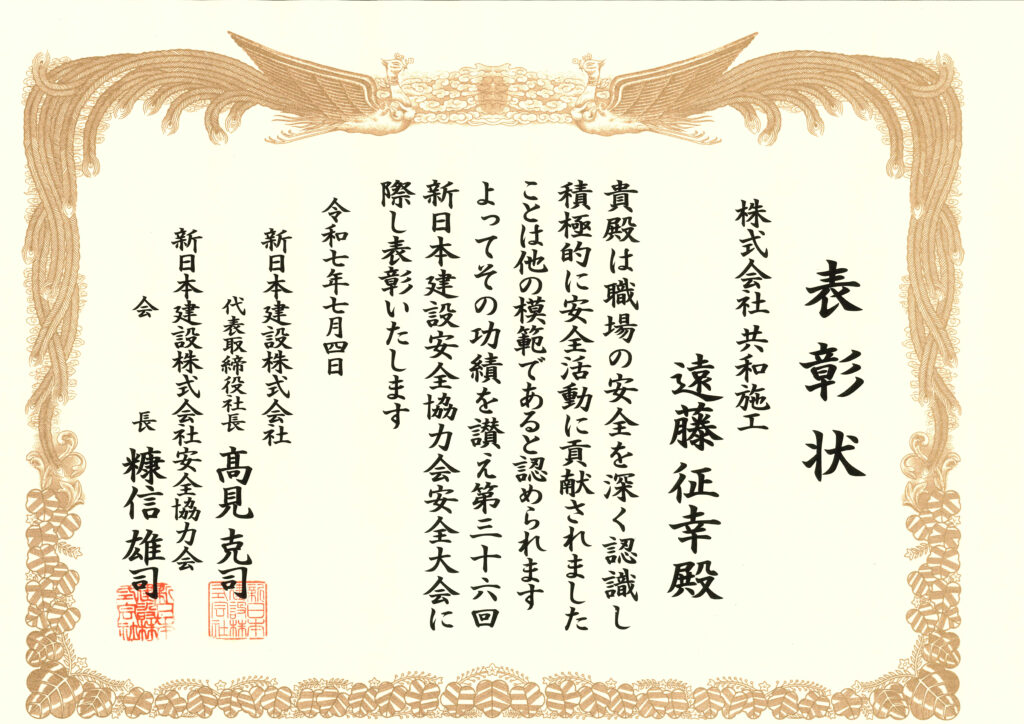 表彰状
株式会社 共和施工
遠藤征幸殿
貴殿は職場の安全を深く認識し
積極的に安全活動に貢献されました
ことは他の模範であると認められます
よってその功績を讃え第三十六回
新日本建設安全協力会安全大会に
際し表彰いたします
令和七年七月四日
新日本建設株式会社
代表取締役社長 髙見克司
新日本建設株式会社安全協力会
会長 糠信雄司
新日本
建設株
式会社
新日本
建設株
式会社